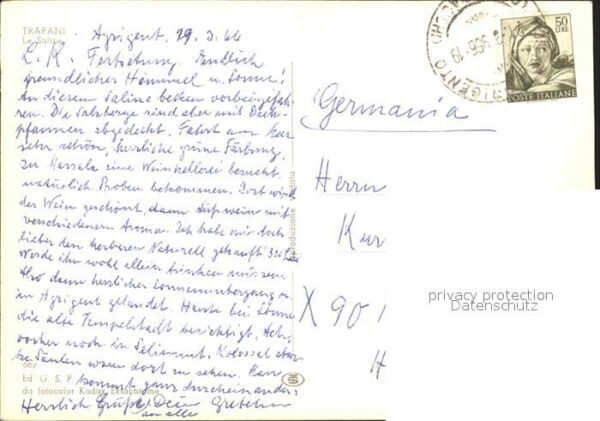 TRAPANI
Le Saline
Agrigent. 29.3.66
L. K. Fortsetzung. Endlich
freundlicher Himmel u. Sonne!
An diesen Saline becken vorbeigefah-
ren. Die Salzberge sind aber mit Dach-
pfannen abgedeckt. Fahrt am
sehr schön, herrliche grüne Färbung.
In Marsala eine Weinkellerei besucht
natürlich Proben bekommen. Dort wird
der Wein geschönt, dann Süßwein mit
verschiedenem Aroma. Ich habe mir doch
lieber den herberen Naturell gekauft
Werde ihn wohl allein trinken müssen.
Also dann herrlicher Sonnenuntergang u.
in Agrigent gelandet. Heute bei Sonne
die alte Tempelstadt besichtigt,
vorher noch in Selinunt. Kolossal
Säulen waren dort zu sehen. Man
kommt ganz durcheinander.
Herrlich Grüße Dein Gretchen
an alle
662
Ed. G. S. P.
da fotocolor Kodak Ektachrome
Riproduzione vietata
AGRIGENTO
19
50
LIRE
POSTE ITALIANE
Germania
Herrn
Kur
X 901
H
privacy protection
Datenschutz